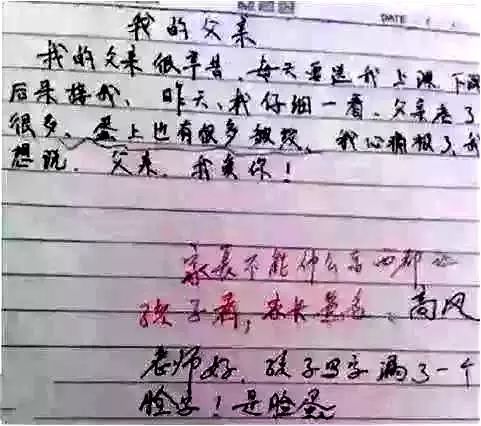 我的父亲
DATE
我的父亲很辛苦,每天要送我上课下课
后来接我。昨天,我仔细一看,父亲老了
很多,蛋上也有很多皱纹。我心痛极了,我
想说,父亲,我爱你!
家长不能什么东西都让
孩子看,家长签名、高风
老师好,孩子写字漏了一个
脸字!是脸蛋